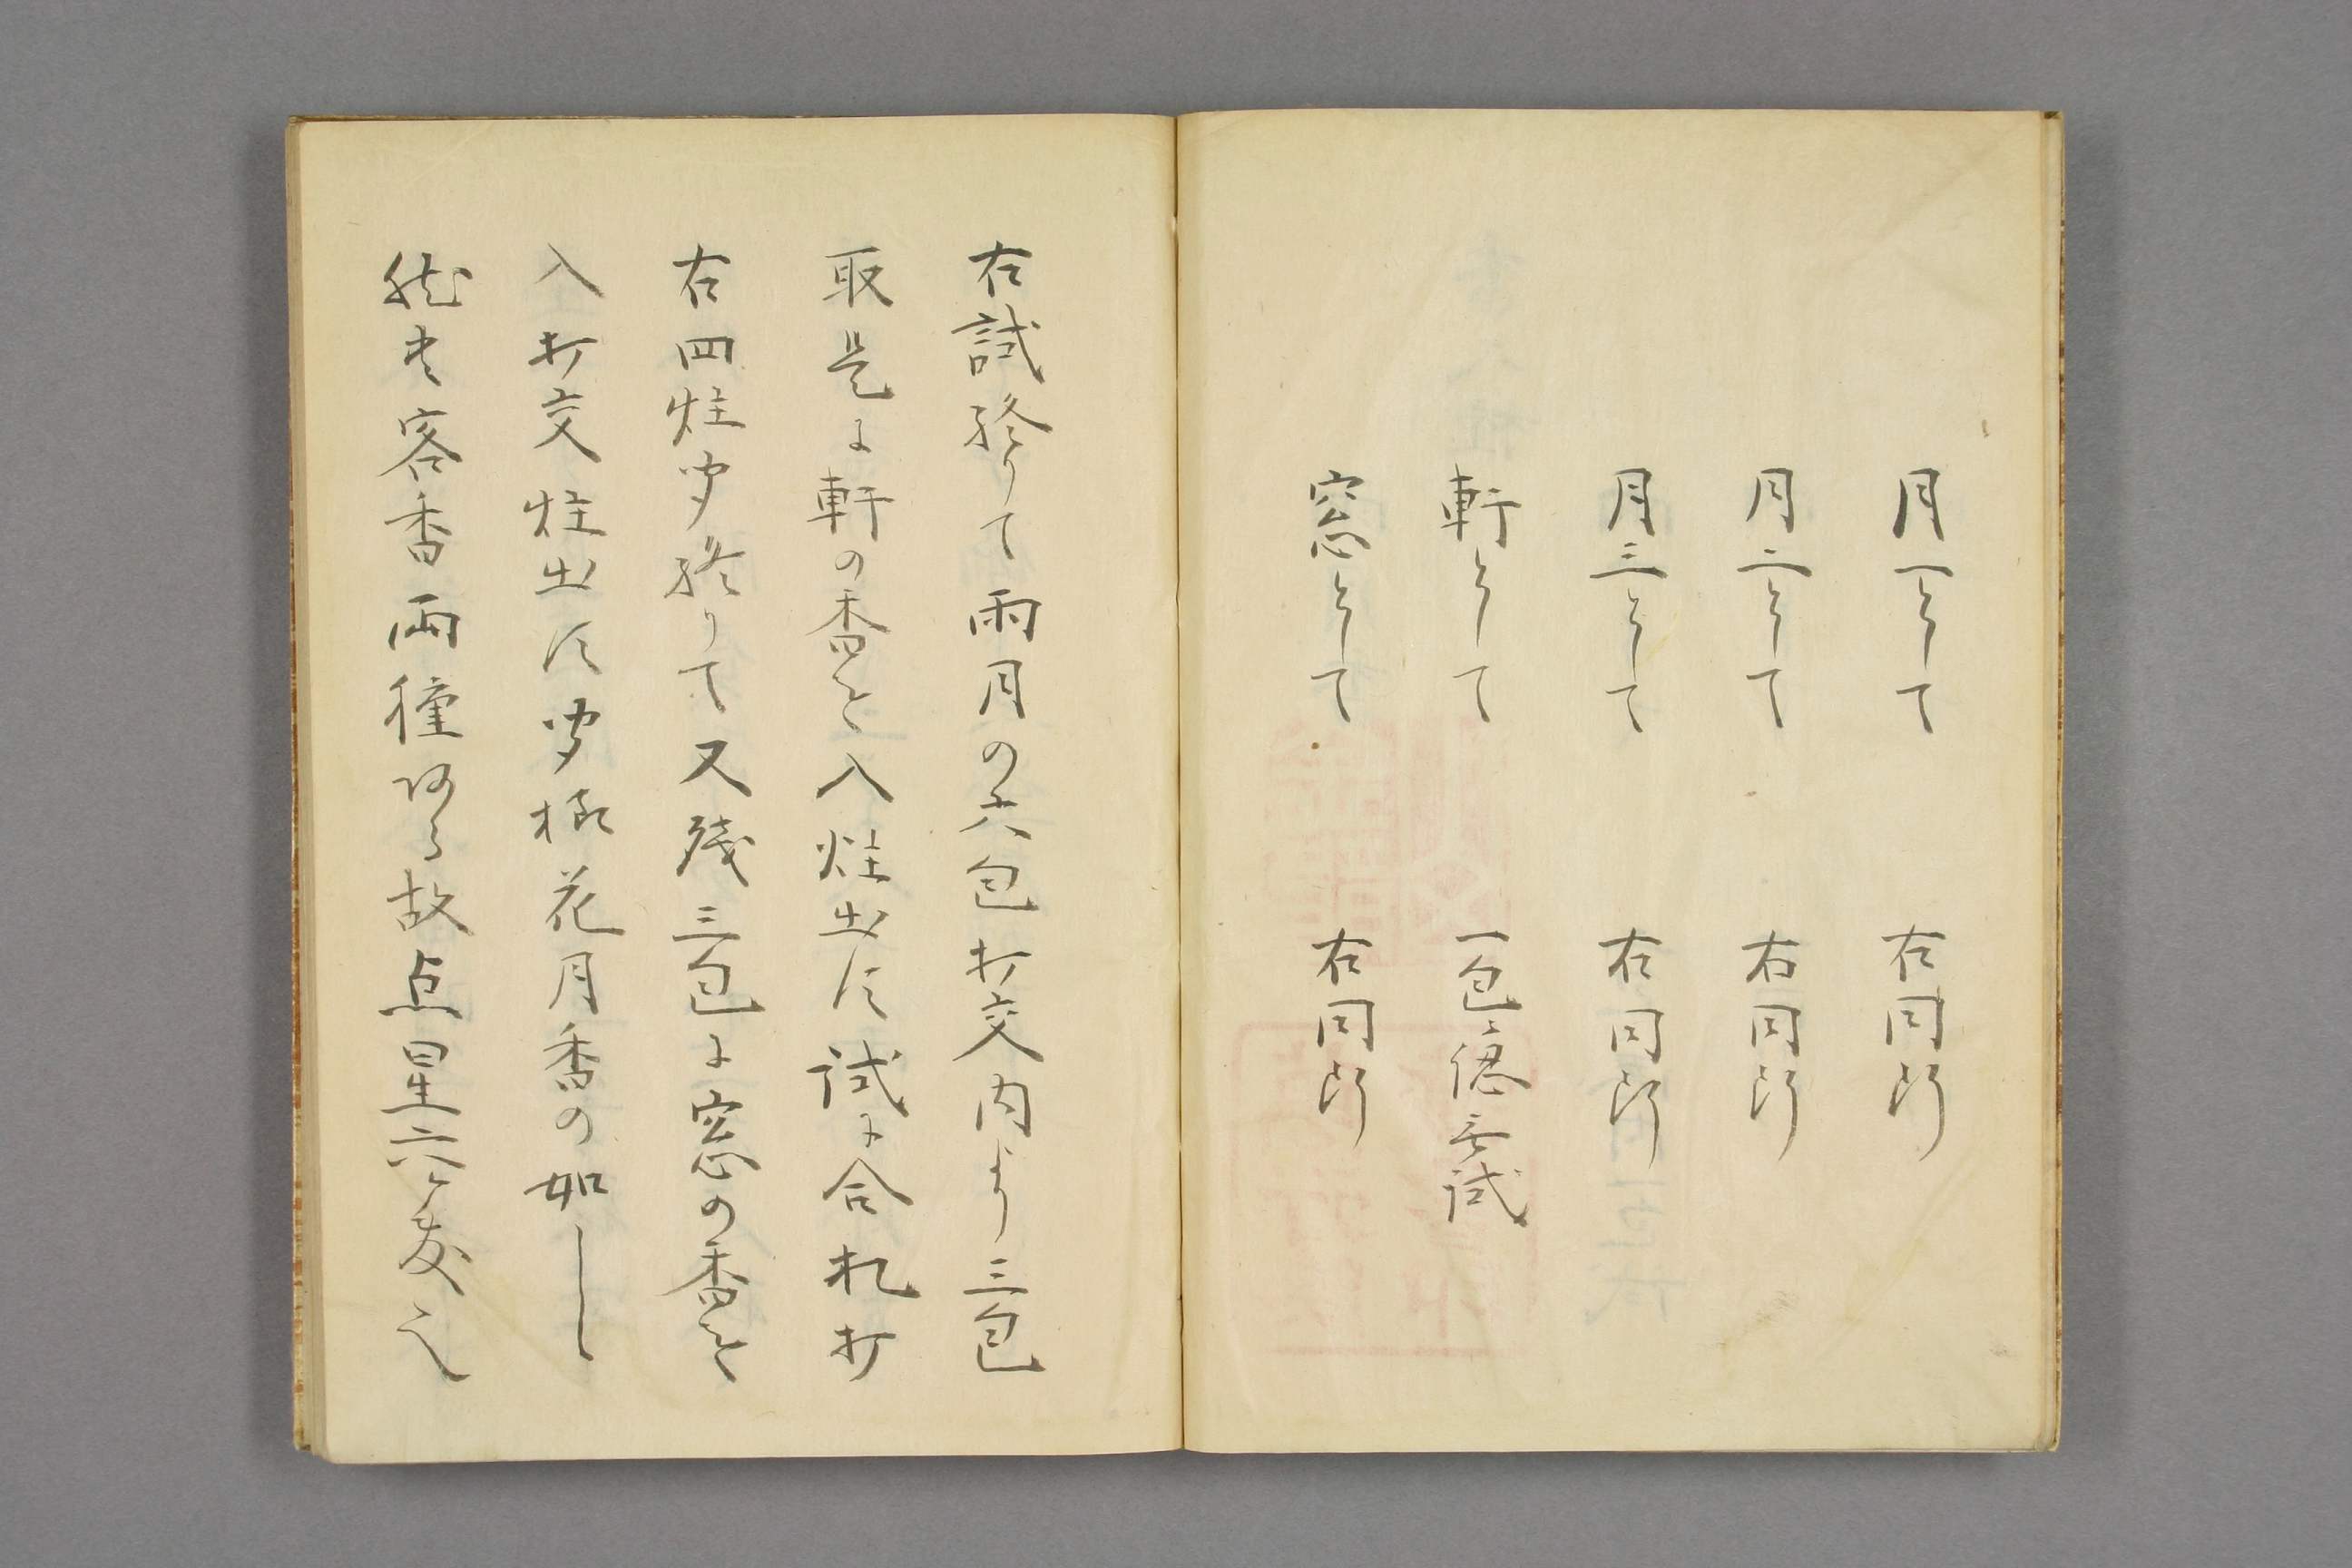 月一として　右同断
月二として　右同断
月三として　右同断
軒として　一包ニ認無試
窓として　右同断
右試終りて雨月の六包打交内より三包
取是に軒の香を入炷出す試に合札打
右四炷聞終りて又残三包に窓の香を
入打交炷出す聞様花月香の如し
然共客香両種ある故点星六之